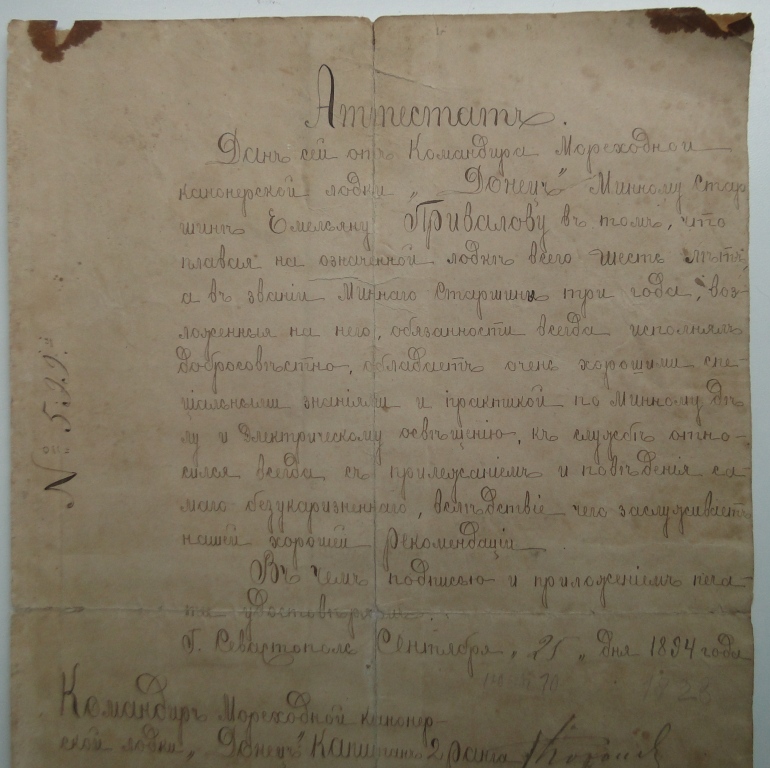 Аттестатъ.
Данъ сей отъ Командира Мореходной
канонерской лодки „Донецъ" Минному Стар
шинѣ Емельяну Привалову въ томъ, что
плавая на означенной лодкѣ всего шесть лѣтъ,
а въ званіи Миннаго Старшины три года, воз-
ложенныя на него, обязанности всегда исполнялъ
добросовѣстно, обладаетъ очень хорошими спе-
ціальными знаніями и практикой по Минному дѣ
лу и Электрическому освѣщенію, къ службѣ отно-
сился всегда съ прилежаніемъ и поведѣнія са-
маго безукаризненнаго, вслѣдствіе чего заслуживаетъ
нашей хорошей рекомендаціи
Въ чемъ подписью и приложеніемъ печа-
ти удостовѣряю.
Г. Севастополь Сентября „25„ дня 1894 года
Командиръ Мореходной канонер-
ской лодки „Донецъ" Капитанъ 2 ранга
№ 522.